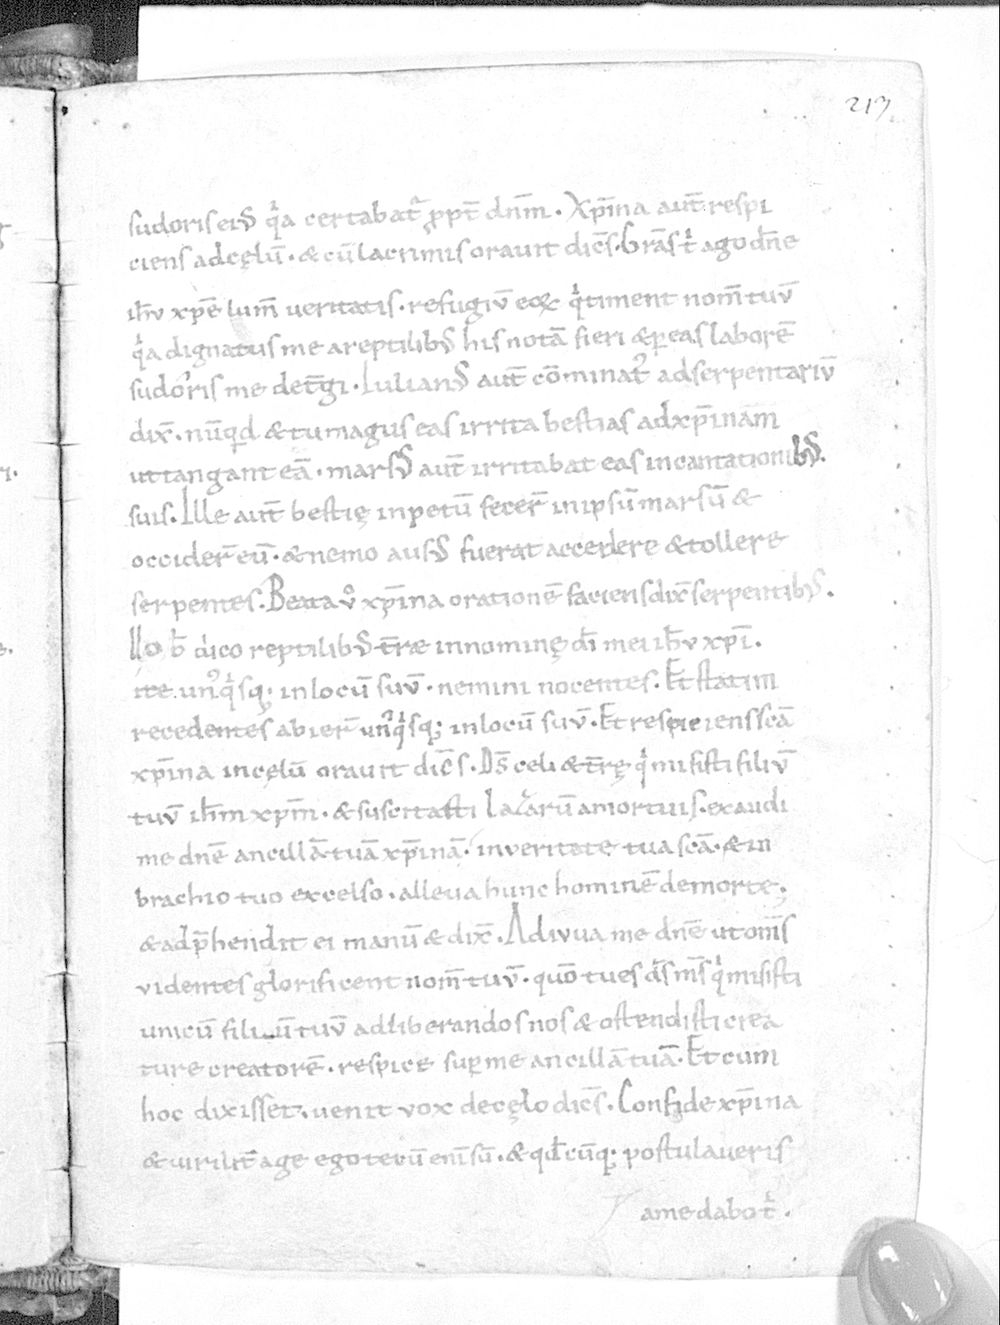 213
sudoris eiꝯ qͥa certabat᷒ ꝓpt̄ dn̄m. Xp̄ina aut̄ respi
ciens ad cęlū. & cū lacrimis orauit dic̄s. Grās tͥ ago dn̄e
ih̄u xp̄e lum̄ ueritatis. refugiū eoꝝ qͥ timent nom̄ tuū
qͥa dignatus me a reptilibꝯ his notā fieri & ꝑ eas laborē
sudoris me det̄gi. Iulianꝯ aut̄ cōminat᷒ ad serpentariū
dix̄. nūqͥd & tu magus es irrita bestias ad xp̄inam
ut tangant eā. marsꝯ aut̄ irritabat eas incantationibꝯ.
suis. Ille aut̄ bestię inpetū fecer̄ in ipsū marsū &
occider̄ eū. & nemo ausꝯ fuerat accedere & tollere
serpentes. Beata ṽ xp̄ina orationē faciens dix̄ serpentibꝯ.
Uob̄ dico reptilibꝯ t̄ræ in nomine dī mei ih̄u xp̄i.
ite unꝯqͥsq; in locū suū. nemini nocentes. Et statim
recedentes abier̄ unꝯqͥsq; in locū suū. Et respiciens scā
xp̄ina in cęlū orauit dic̄s. Ds̄ celi & t̄rę qͥ misisti filiū
tuū ih̄m xp̄m. & suscitasti lazarū a mortuis. exaudi
me dn̄e ancillā tuā xp̄inā. in ueritate tua scā. & in
brachio tuo excelso. alleua hunc hominē de morte.
& adp̄hendit ei manū & dix̄. Adiuua me dn̄e ut om̄s
videntes glorificent nom̄ tuū. quō tu es ds̄ ms̄ qͥ misisti
unicū filiū tuū ad liberandos nos & ostendisti crea
ture creatorē. respice suꝑ me ancillā tuā. Et cum
hoc dixisset. uenit vox de cęlo dic̄s. Confide xp̄ina
& uirilit̄ age ego tecū eni sū. & qd̄cūq; postulaueris
a me dabo tͥ.